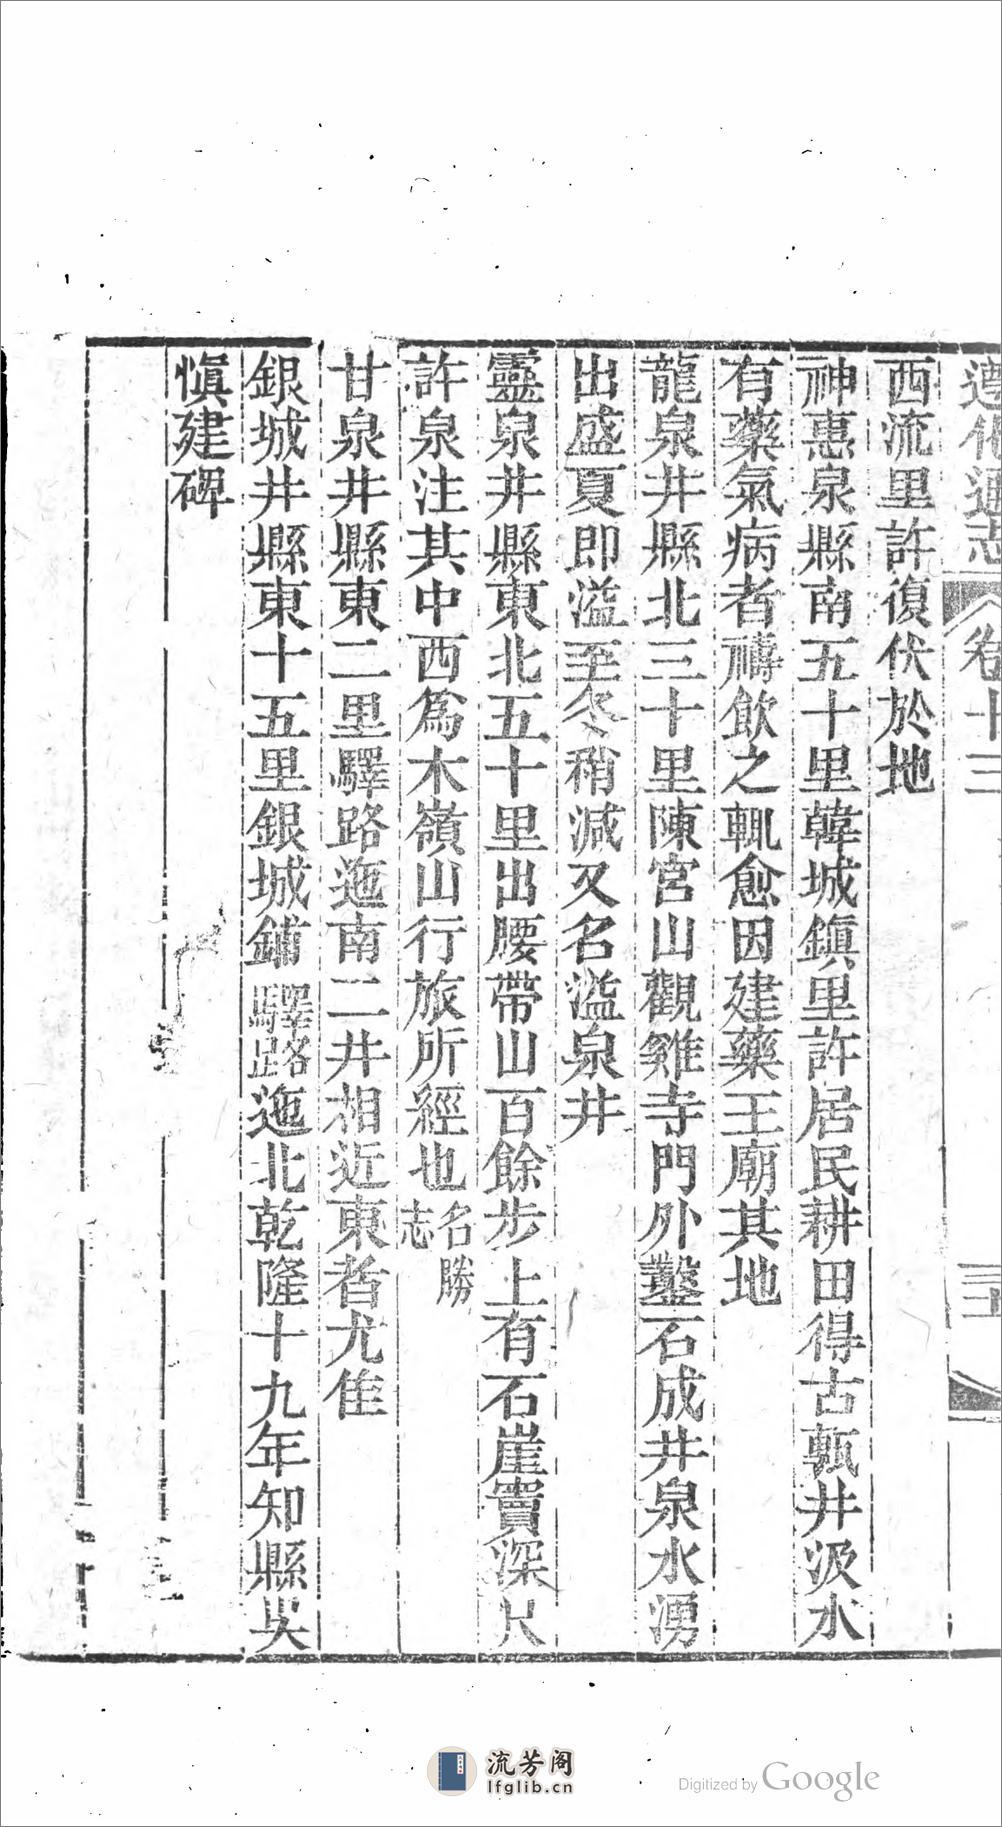 遵化通志 卷十三
西流里許復伏於地
神惠泉縣南五十里韓城鎮里許居民耕田得古甎井汲水
有藥氣病者禱飲之輒愈因建藥王廟其地
龍泉井縣北三十里陳宮山觀雞寺門外鑿石成井泉水湧
出盛夏即溢至冬稍減又名溢泉井
靈泉井縣東北五十里出腰帶山百餘步上有石崖竇深尺
許泉注其中西爲木嶺山行旅所經也名勝志
甘泉井縣東二里驛路迤南二井相近東者尤佳
銀城井縣東十五里銀城鋪驛路迤北乾隆十九年知縣吳
愼建碑
流芳阁
lfglib.cn
Digitized by Google